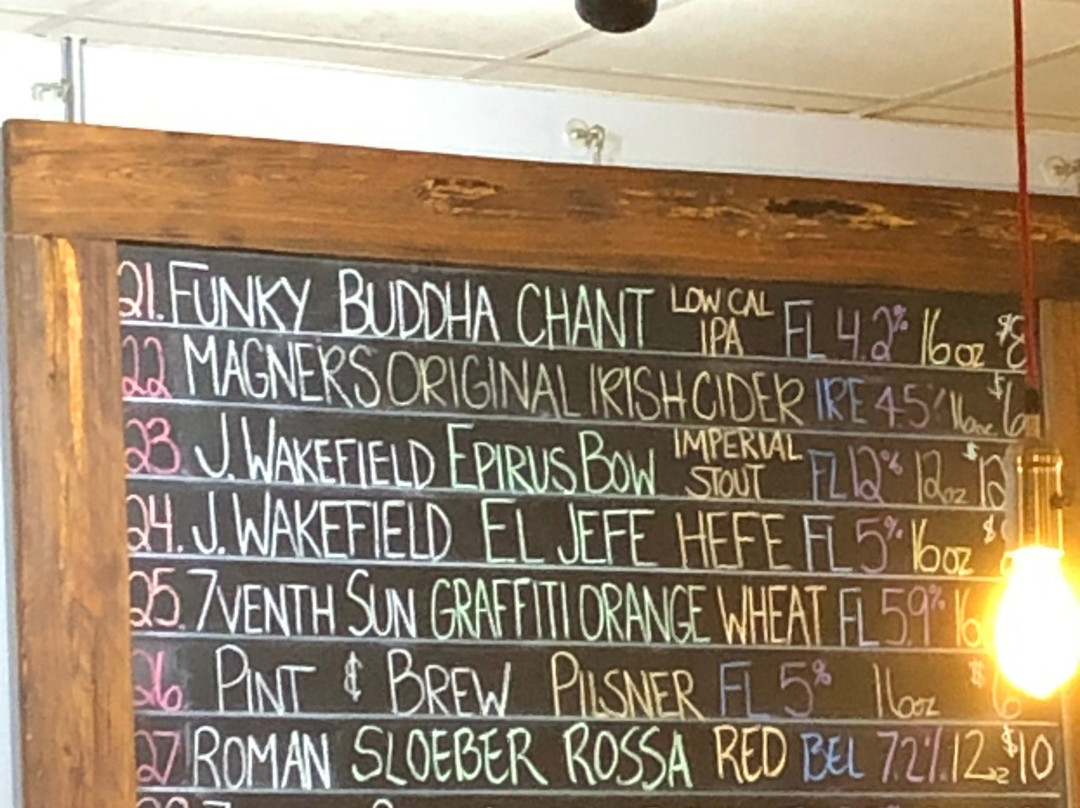 21. FUNKY BUDDHA CHANT LOW CAL IPA FL 4.2% 16oz $8
22 MAGNERS ORIGINAL IRISH CIDER IRE 4.5% 16oz $6
23 J. WAKEFIELD EPIRUS BOW IMPERIAL STOUT FL 12% 12oz $12
24. J. WAKEFIELD EL JEFE HEFE FL 5% 16oz $
25. 7VENTH SUN GRAFFITI ORANGE WHEAT FL 5.9% 16
26 PINT & BREW PILSNER FL 5% 16oz $6
27 ROMAN SLOEBER ROSSA RED BEL 7.2% 12oz $10